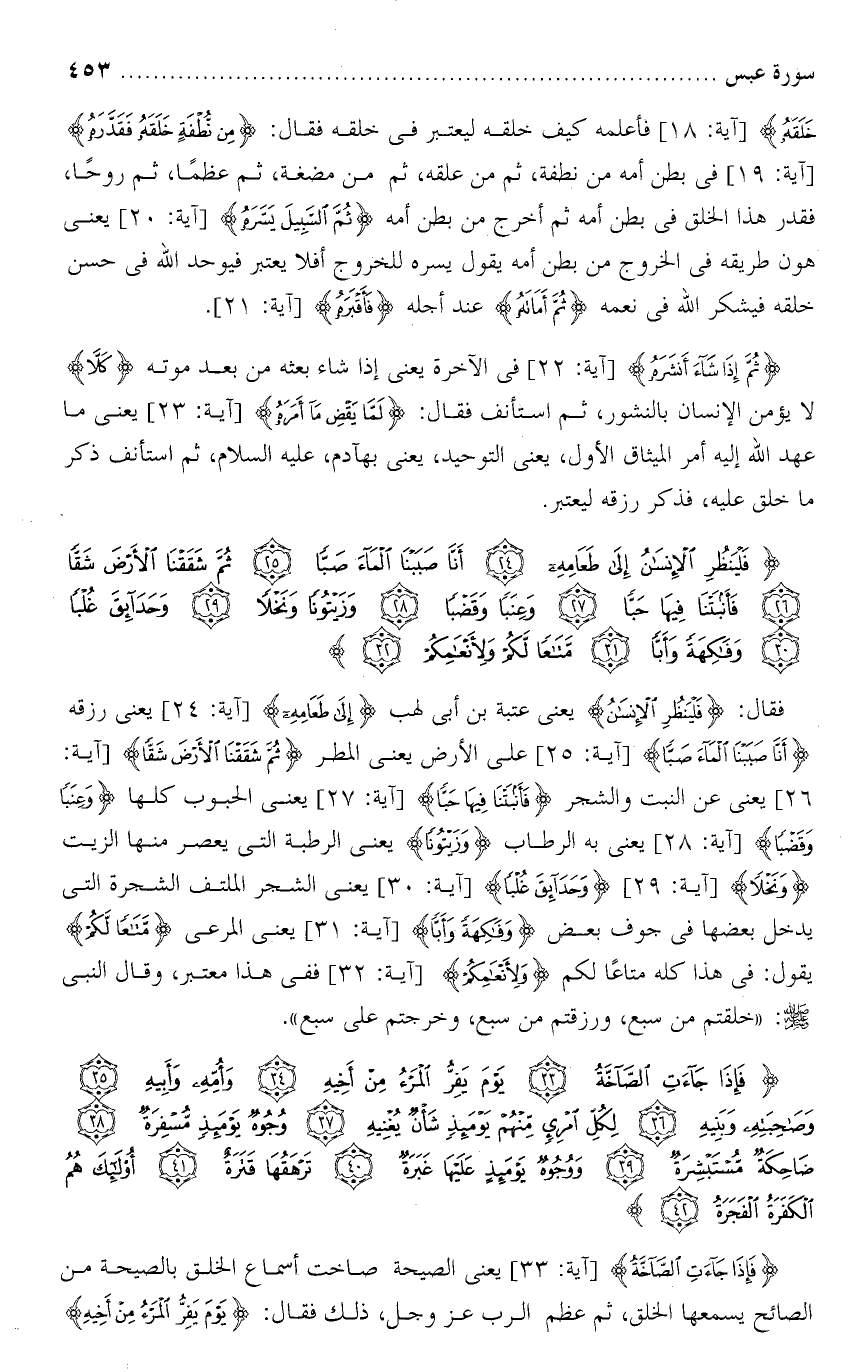 سورة عبس ........................................................................ ٤٥٣
خَلَقَهُ﴾ [آية: ١٨] فأعلمه كيف خلقه ليعتبر فى خلقه فقال: ﴿مِن نُّطْفَةٍ خَلَقَهُ فَقَدَّرَهُ﴾
[آية: ١٩] فى بطن أمه من نطفة، ثم من علقه، ثم من مضغة، ثم عظمًا، ثم روحًا،
فقدر هذا الخلق فى بطن أمه ثم أخرج من بطن أمه ﴿ثُمَّ السَّبِيلَ يَسَّرَهُ﴾ [آية: ٢٠] يعنى
هون طريقه فى الخروج من بطن أمه يقول يسره للخروج أفلا يعتبر فيوحد الله فى حسن
خلقه فيشكر الله فى نعمه ﴿ثُمَّ أَمَاتَهُ﴾ عند أجله ﴿فَأَقْبَرَهُ﴾ [آية: ٢١].
﴿ثُمَّ إِذَا شَآءَ أَنشَرَهُ﴾ [آية: ٢٢] فى الآخرة يعنى إذا شاء بعثه من بعد موته ﴿كَلَّا﴾
لا يؤمن الإنسان بالنشور، ثم استأنف فقال: ﴿لَمَّا يَقْضِ مَآ أَمَرَهُ﴾ [آية: ٢٣] يعنى ما
عهد الله إليه أمر الميثاق الأول، يعنى التوحيد، يعنى بهآدم، عليه السلام، ثم استأنف ذكر
ما خلق عليه، فذكر رزقه ليعتبر.
﴿ فَلْيَنظُرِ ٱلْإِنسَٰنُ إِلَىٰ طَعَامِهِۦٓ ٢٤ أَنَّا صَبَبْنَا ٱلْمَآءَ صَبًّا ٢٥ ثُمَّ شَقَقْنَا ٱلْأَرْضَ شَقًّا
٢٦ فَأَنۢبَتْنَا فِيهَا حَبًّا ٢٧ وَعِنَبًا وَقَضْبًا ٢٨ وَزَيْتُونًا وَنَخْلًا ٢٩ وَحَدَآئِقَ غُلْبًا
٣٠ وَفَٰكِهَةً وَأَبًّا ٣١ مَّتَٰعًا لَّكُمْ وَلِأَنْعَٰمِكُمْ ٣٢ ﴾
فقال: ﴿فَلْيَنظُرِ ٱلْإِنسَٰنُ﴾ يعنى عتبة بن أبى لهب ﴿إِلَىٰ طَعَامِهِۦٓ﴾ [آية: ٢٤] يعنى رزقه
﴿أَنَّا صَبَبْنَا ٱلْمَآءَ صَبًّا﴾ [آية: ٢٥] على الأرض يعنى المطر ﴿ثُمَّ شَقَقْنَا ٱلْأَرْضَ شَقًّا﴾ [آية:
٢٦] يعنى عن النبت والشجر ﴿فَأَنۢبَتْنَا فِيهَا حَبًّا﴾ [آية: ٢٧] يعنى الحبوب كلها ﴿وَعِنَبًا
وَقَضْبًا﴾ [آية: ٢٨] يعنى به الرطاب ﴿وَزَيْتُونًا﴾ يعنى الرطبة التى يعصر منها الزيت
﴿وَنَخْلًا﴾ [آية: ٢٩] ﴿وَحَدَآئِقَ غُلْبًا﴾ [آية: ٣٠] يعنى الشجر الملتف الشجرة التى
يدخل بعضها فى جوف بعض ﴿وَفَٰكِهَةً وَأَبًّا﴾ [آية: ٣١] يعنى المرعى ﴿مَّتَٰعًا لَّكُمْ﴾
يقول: فى هذا كله متاعًا لكم ﴿وَلِأَنْعَٰمِكُمْ﴾ [آية: ٣٢] ففى هذا معتبر، وقال النبى
ﷺ: «خلقتم من سبع، ورزقتم من سبع، وخرجتم على سبع».
﴿ فَإِذَا جَآءَتِ ٱلصَّآخَّةُ ٣٣ يَوْمَ يَفِرُّ ٱلْمَرْءُ مِنْ أَخِيهِ ٣٤ وَأُمِّهِۦ وَأَبِيهِ ٣٥
وَصَٰحِبَتِهِۦ وَبَنِيهِ ٣٦ لِكُلِّ ٱمْرِئٍ مِّنْهُمْ يَوْمَئِذٍ شَأْنٌ يُغْنِيهِ ٣٧ وُجُوهٌ يَوْمَئِذٍ مُّسْفِرَةٌ ٣٨
ضَاحِكَةٌ مُّسْتَبْشِرَةٌ ٣٩ وَوُجُوهٌ يَوْمَئِذٍ عَلَيْهَا غَبَرَةٌ ٤٠ تَرْهَقُهَا قَتَرَةٌ ٤١ أُو۟لَٰٓئِكَ هُمُ
ٱلْكَفَرَةُ ٱلْفَجَرَةُ ٤٢ ﴾
﴿فَإِذَا جَآءَتِ ٱلصَّآخَّةُ﴾ [آية: ٣٣] يعنى الصيحة صاخت أسماع الخلق بالصيحة من
الصائح يسمعها الخلق، ثم عظم الرب عز وجل، ذلك فقال: ﴿يَوْمَ يَفِرُّ ٱلْمَرْءُ مِنْ أَخِيهِ﴾